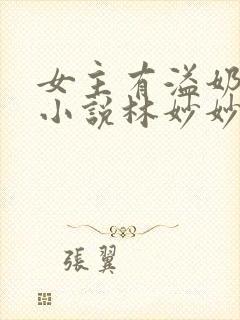 女主有溢奶
小說林妙妙
張翼